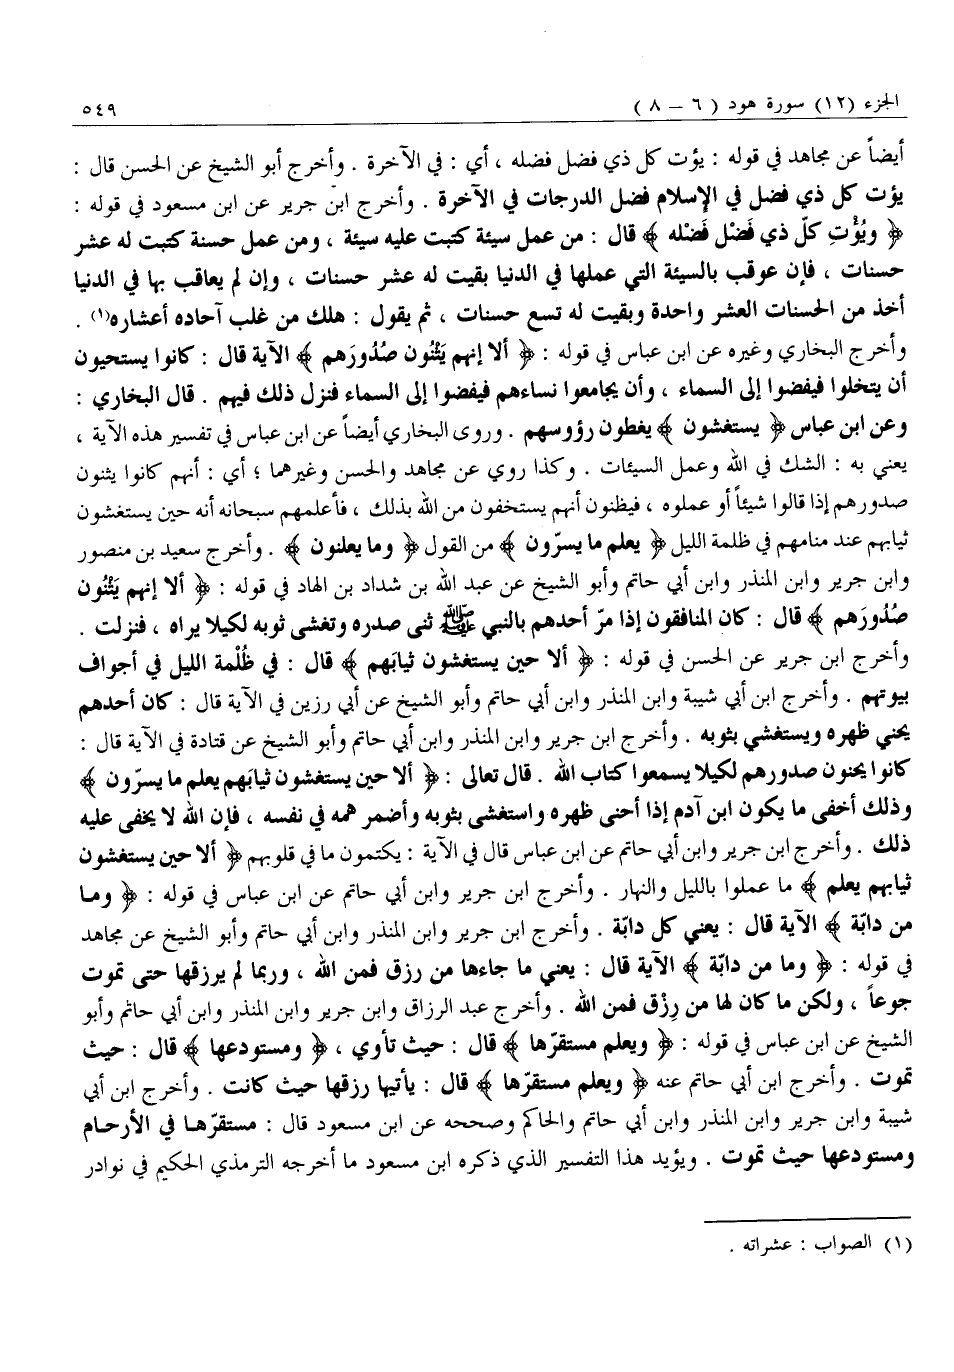 الجزء (١٢) سورة هود ( ٦ – ٨ ) ٥٤٩
أيضاً عن مجاهد في قوله : يؤت كل ذي فضل فضله ، أي : في الآخرة . وأخرج أبو الشيخ عن الحسن قال :
يؤت كل ذي فضل في الإسلام فضل الدرجات في الآخرة . وأخرج ابن جرير عن ابن مسعود في قوله :
﴿ ويُؤْتِ كلّ ذي فَضْل فَضْله ﴾ قال : من عمل سيئة كتبت عليه سيئة ، ومن عمل حسنة كتبت له عشر
حسنات ، فإن عوقب بالسيئة التي عملها في الدنيا بقيت له عشر حسنات ، وإن لم يعاقب بها في الدنيا
أخذ من الحسنات العشر واحدة وبقيت له تسع حسنات ، ثم يقول : هلك من غلب آحاده أعشاره(١) .
وأخرج البخاري وغيره عن ابن عباس في قوله : ﴿ ألا إنهم يَثْنُون صُدُورَهم ﴾ الآية قال : كانوا يستحيون
أن يتخلوا فيفضوا إلى السماء ، وأن يجامعوا نساءهم فيفضوا إلى السماء فنزل ذلك فيهم . قال البخاري :
وعن ابن عباس ﴿ يستغشون ﴾ يغطون رؤوسهم . وروى البخاري أيضاً عن ابن عباس في تفسير هذه الآية ،
يعني به : الشك في الله وعمل السيئات . وكذا روي عن مجاهد والحسن وغيرهما ؛ أي : أنهم كانوا يثنون
صدورهم إذا قالوا شيئاً أو عملوه ، فيظنون أنهم يستخفون من الله بذلك ، فأعلمهم سبحانه أنه حين يستغشون
ثيابهم عند منامهم في ظلمة الليل ﴿ يعلم ما يسرّون ﴾ من القول ﴿ وما يعلنون ﴾ . وأخرج سعيد بن منصور
وابن جرير وابن المنذر وابن أبي حاتم وأبو الشيخ عن عبد الله بن شداد بن الهاد في قوله : ﴿ ألا إنهم يَثْنُون
صُدُورَهم ﴾ قال : كان المنافقون إذا مرّ أحدهم بالنبي ﷺ ثنى صدره وتغشى ثوبه لكيلا يراه ، فنزلت .
وأخرج ابن جرير عن الحسن في قوله : ﴿ ألا حين يستغشون ثيابَهم ﴾ قال : في ظُلْمة الليل في أجواف
بيوتهم . وأخرج ابن أبي شيبة وابن المنذر وابن أبي حاتم وأبو الشيخ عن أبي رزين في الآية قال : كان أحدهم
يحني ظهره ويستغشي بثوبه . وأخرج ابن جرير وابن المنذر وابن أبي حاتم وأبو الشيخ عن قتادة في الآية قال :
كانوا يحنون صدورهم لكيلا يسمعوا كتاب الله . قال تعالى : ﴿ ألا حين يستغشون ثيابَهم يعلم ما يسرّون ﴾
وذلك أخفى ما يكون ابن آدم إذا أحنى ظهره واستغشى بثوبه وأضمر همه في نفسه ، فإن الله لا يخفى عليه
ذلك . وأخرج ابن جرير وابن أبي حاتم عن ابن عباس قال في الآية : يكتمون ما في قلوبهم ﴿ ألا حين يستغشون
ثيابهم يعلم ﴾ ما عملوا بالليل والنهار . وأخرج ابن جرير وابن أبي حاتم عن ابن عباس في قوله : ﴿ وما
من دابّة ﴾ الآية قال : يعني كل دابّة . وأخرج ابن جرير وابن المنذر وابن أبي حاتم وأبو الشيخ عن مجاهد
في قوله : ﴿ وما من دابّة ﴾ الآية قال : يعني ما جاءها من رزق فمن الله ، وربما لم يرزقها حتى تموت
جوعاً ، ولكن ما كان لها من رِزْق فمن الله . وأخرج عبد الرزاق وابن جرير وابن المنذر وابن أبي حاتم وأبو
الشيخ عن ابن عباس في قوله : ﴿ ويعلم مستقرّها ﴾ قال : حيث تأوي ، ﴿ ومستودعها ﴾ قال : حيث
تموت . وأخرج ابن أبي حاتم عنه ﴿ ويعلم مستقرّها ﴾ قال : يأتيها رزقها حيث كانت . وأخرج ابن أبي
شيبة وابن جرير وابن المنذر وابن أبي حاتم والحاكم وصححه عن ابن مسعود قال : مستقرّها في الأرحام
ومستودعها حيث تموت . ويؤيد هذا التفسير الذي ذكره ابن مسعود ما أخرجه الترمذي الحكيم في نوادر
(١) الصواب : عشراته .